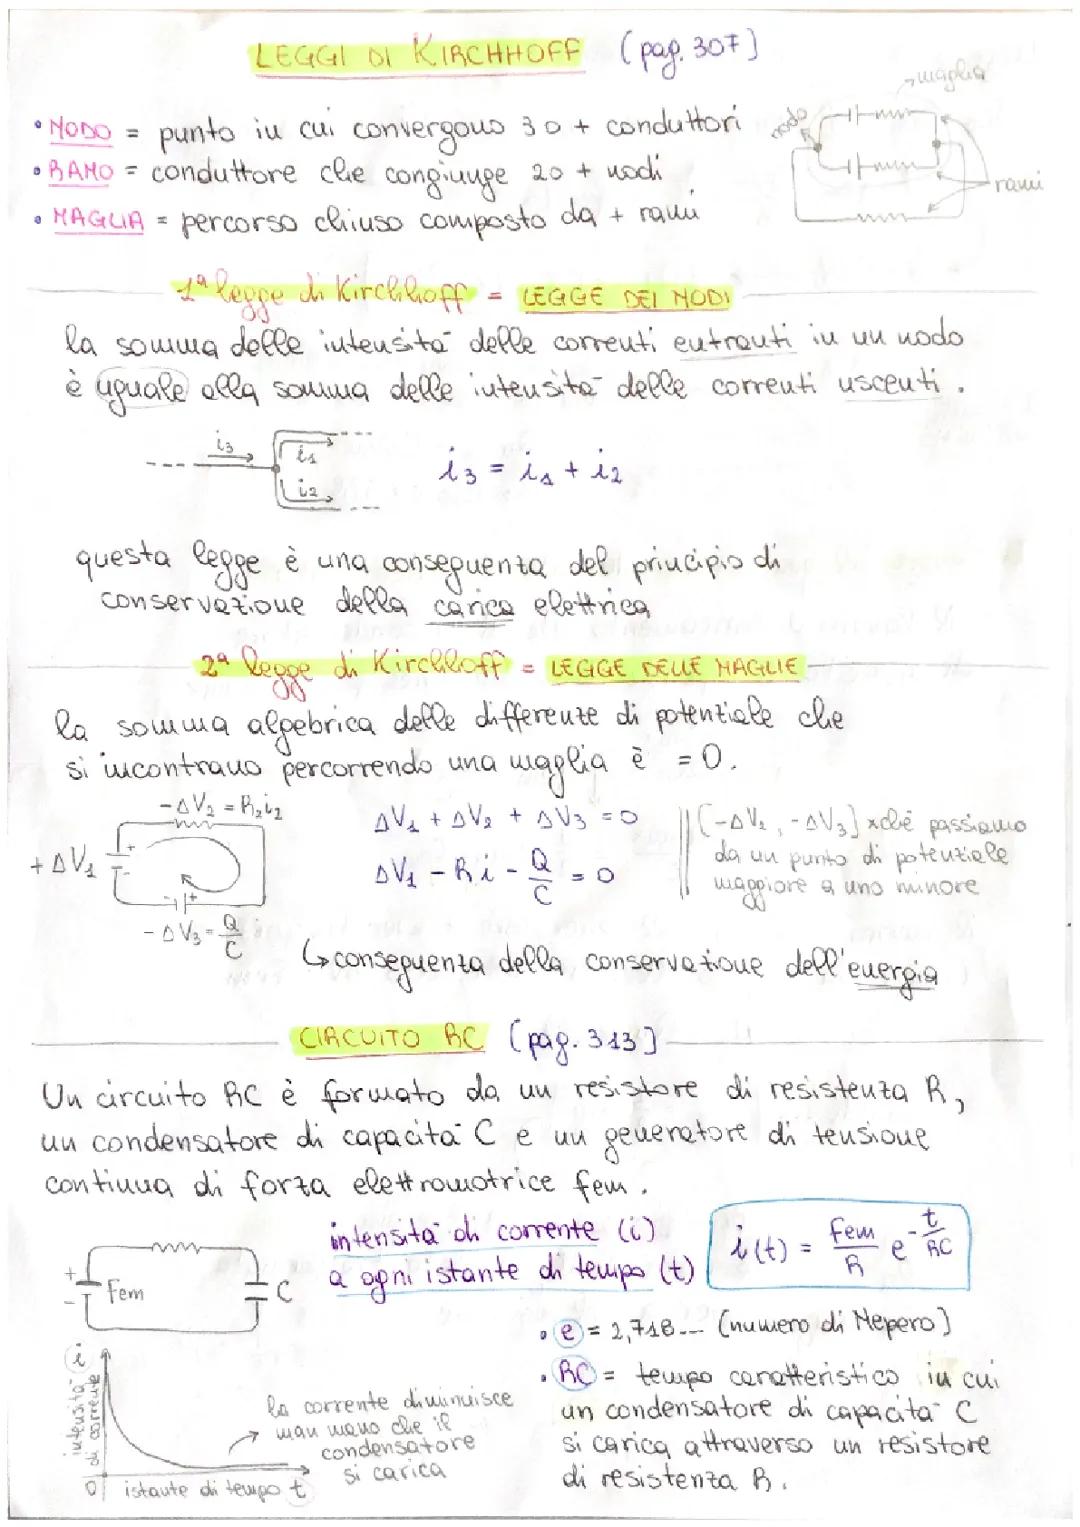 LEGGI DI KIRCHHOFF (pag. 307)
maglia
nodo
rami
• NODO = punto in cui convergono 3 o + conduttori
• RAMO = conduttore che congiunge 2 o + nodi
• MAGLIA = percorso chiuso composto da + rami
1ª legge di Kirchhoff = LEGGE DEI NODI
la somma delle intensità delle correnti entranti in un nodo
è uguale alla somma delle intensità delle correnti uscenti.
i3 i1 i2
i3 = i1 + i2
questa legge è una conseguenza del principio di
conservazione della carica elettrica
2ª legge di Kirchhoff = LEGGE DELLE MAGLIE
la somma algebrica delle differenze di potenziale che
si incontrano percorrendo una maglia è = 0.
-ΔV2 = R2i2
+ΔV1
-ΔV3 = Q/C
ΔV1 + ΔV2 + ΔV3 = 0
ΔV1 - Ri - Q/C = 0
(-ΔV2, -ΔV3) xchè passiamo
da un punto di potenziale
maggiore a uno minore
↳ conseguenza della conservazione dell'energia
CIRCUITO RC (pag. 313)
Un circuito RC è formato da un resistore di resistenza R,
un condensatore di capacità C e un generatore di tensione
continua di forza elettromotrice fem.
+ - fem C
intensità di corrente (i)
a ogni istante di tempo (t)
i(t) = fem/R e^(-t/RC)
• e = 2,718... (numero di Nepero)
• RC = tempo caratteristico in cui
un condensatore di capacità C
si carica attraverso un resistore
di resistenza R.
intensità i
di corrente
la corrente diminuisce
man mano che il
condensatore
si carica
0 istante di tempo t